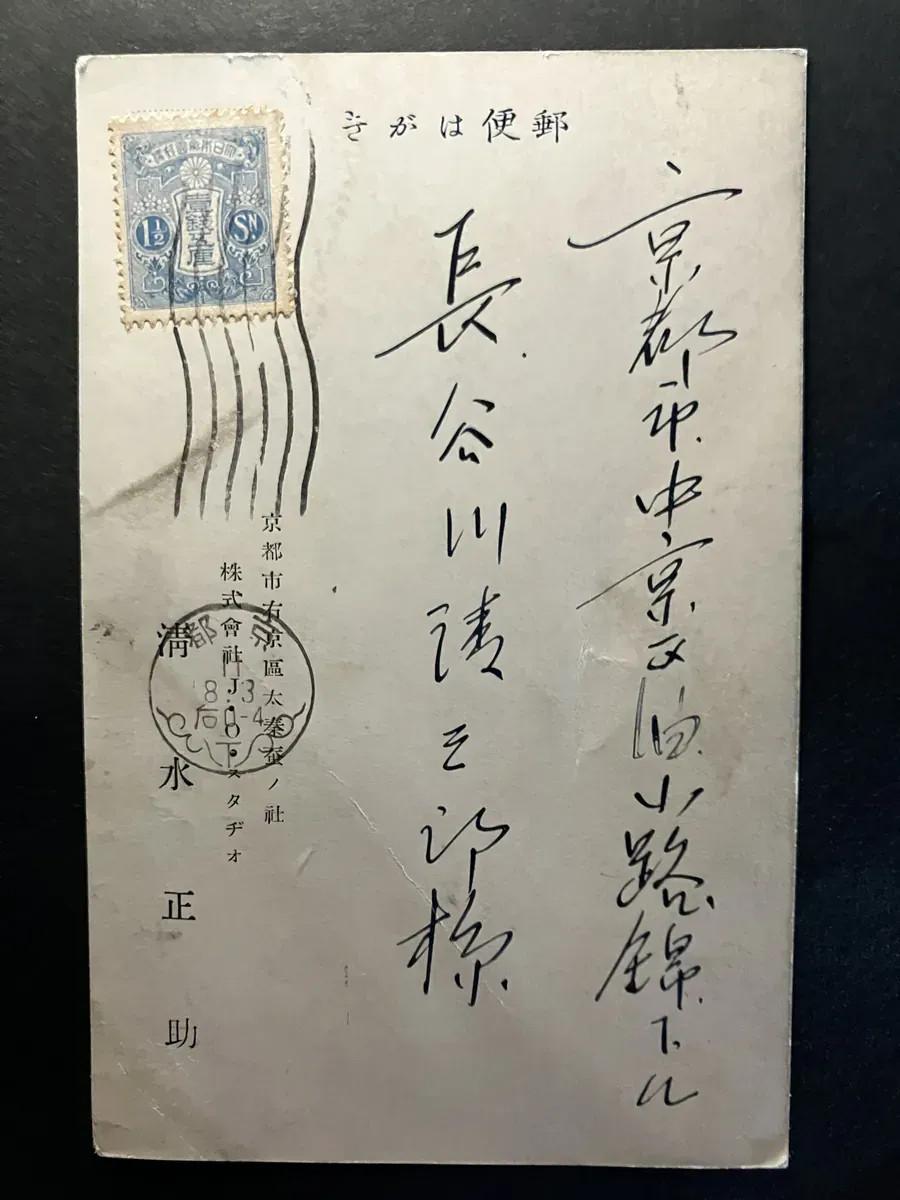 郵便はがき
大日本帝國郵便
壹錢五厘
1½ Sn
京都市中京区油小路錦下ル
長谷川清三郎様
京都市右京區太秦蚕ノ社
株式會社J・O・スタヂオ
清水正助
京都